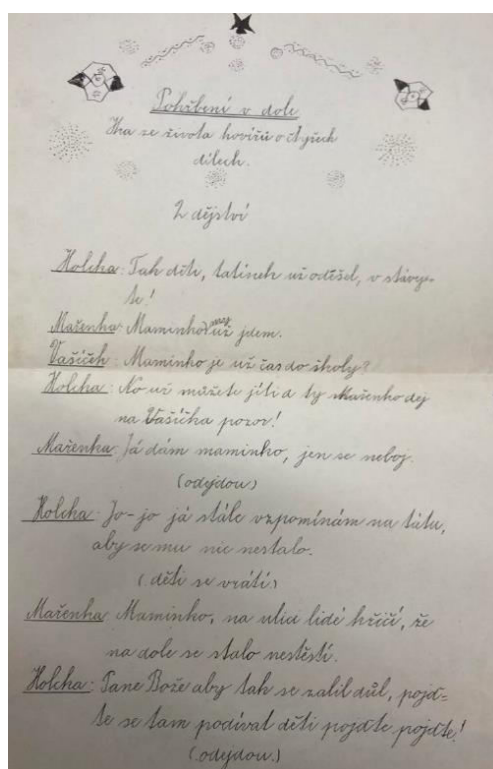 Pohřbení v dole
Hra ze života hovířů o čtyřech
dílech.
2 dějství
Holcha: Tak děti, tatínek už odešel, v stávej-
te!
Mařenka: Maminko my už jdem.
Vašíček: Maminko je už čas do školy?
Holcha: No už můžete jíti a ty Mařenko dej
na Vašíčka pozor!
Mařenka: Já dám maminko, jen se neboj.
(odejdou)
Holcha: Jo-jo já stále vzpomínám na tátu,
aby se mu nic nestalo.
(děti se vrátí)
Mařenka: Maminko, na ulici lidé křičí, že
na dole se stalo nestěstí.
Holcha: Pane Bože aby tak se zalil důl, pojď-
te se tam podívat děti pojďte pojďte!
(odejdou.)